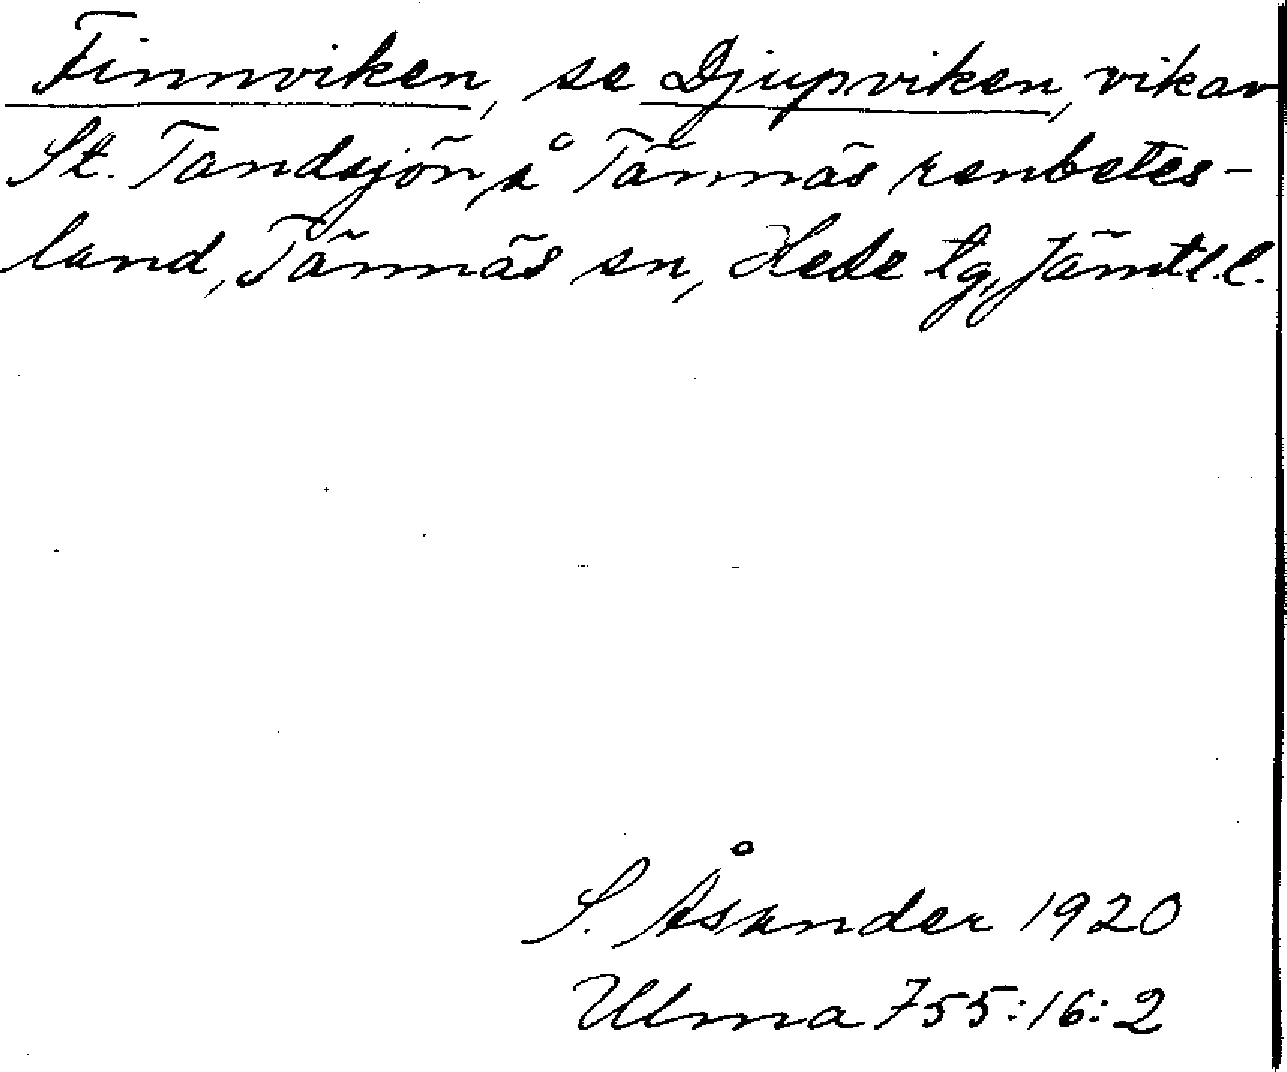 Finnviken, se Djupviken, vik av
St. Tandsjön å Tännäs renbetes-
land, Tännäs sn, Hede tg, Jämtl.l.
S. Åsander 1920
Ulma 755:16:2